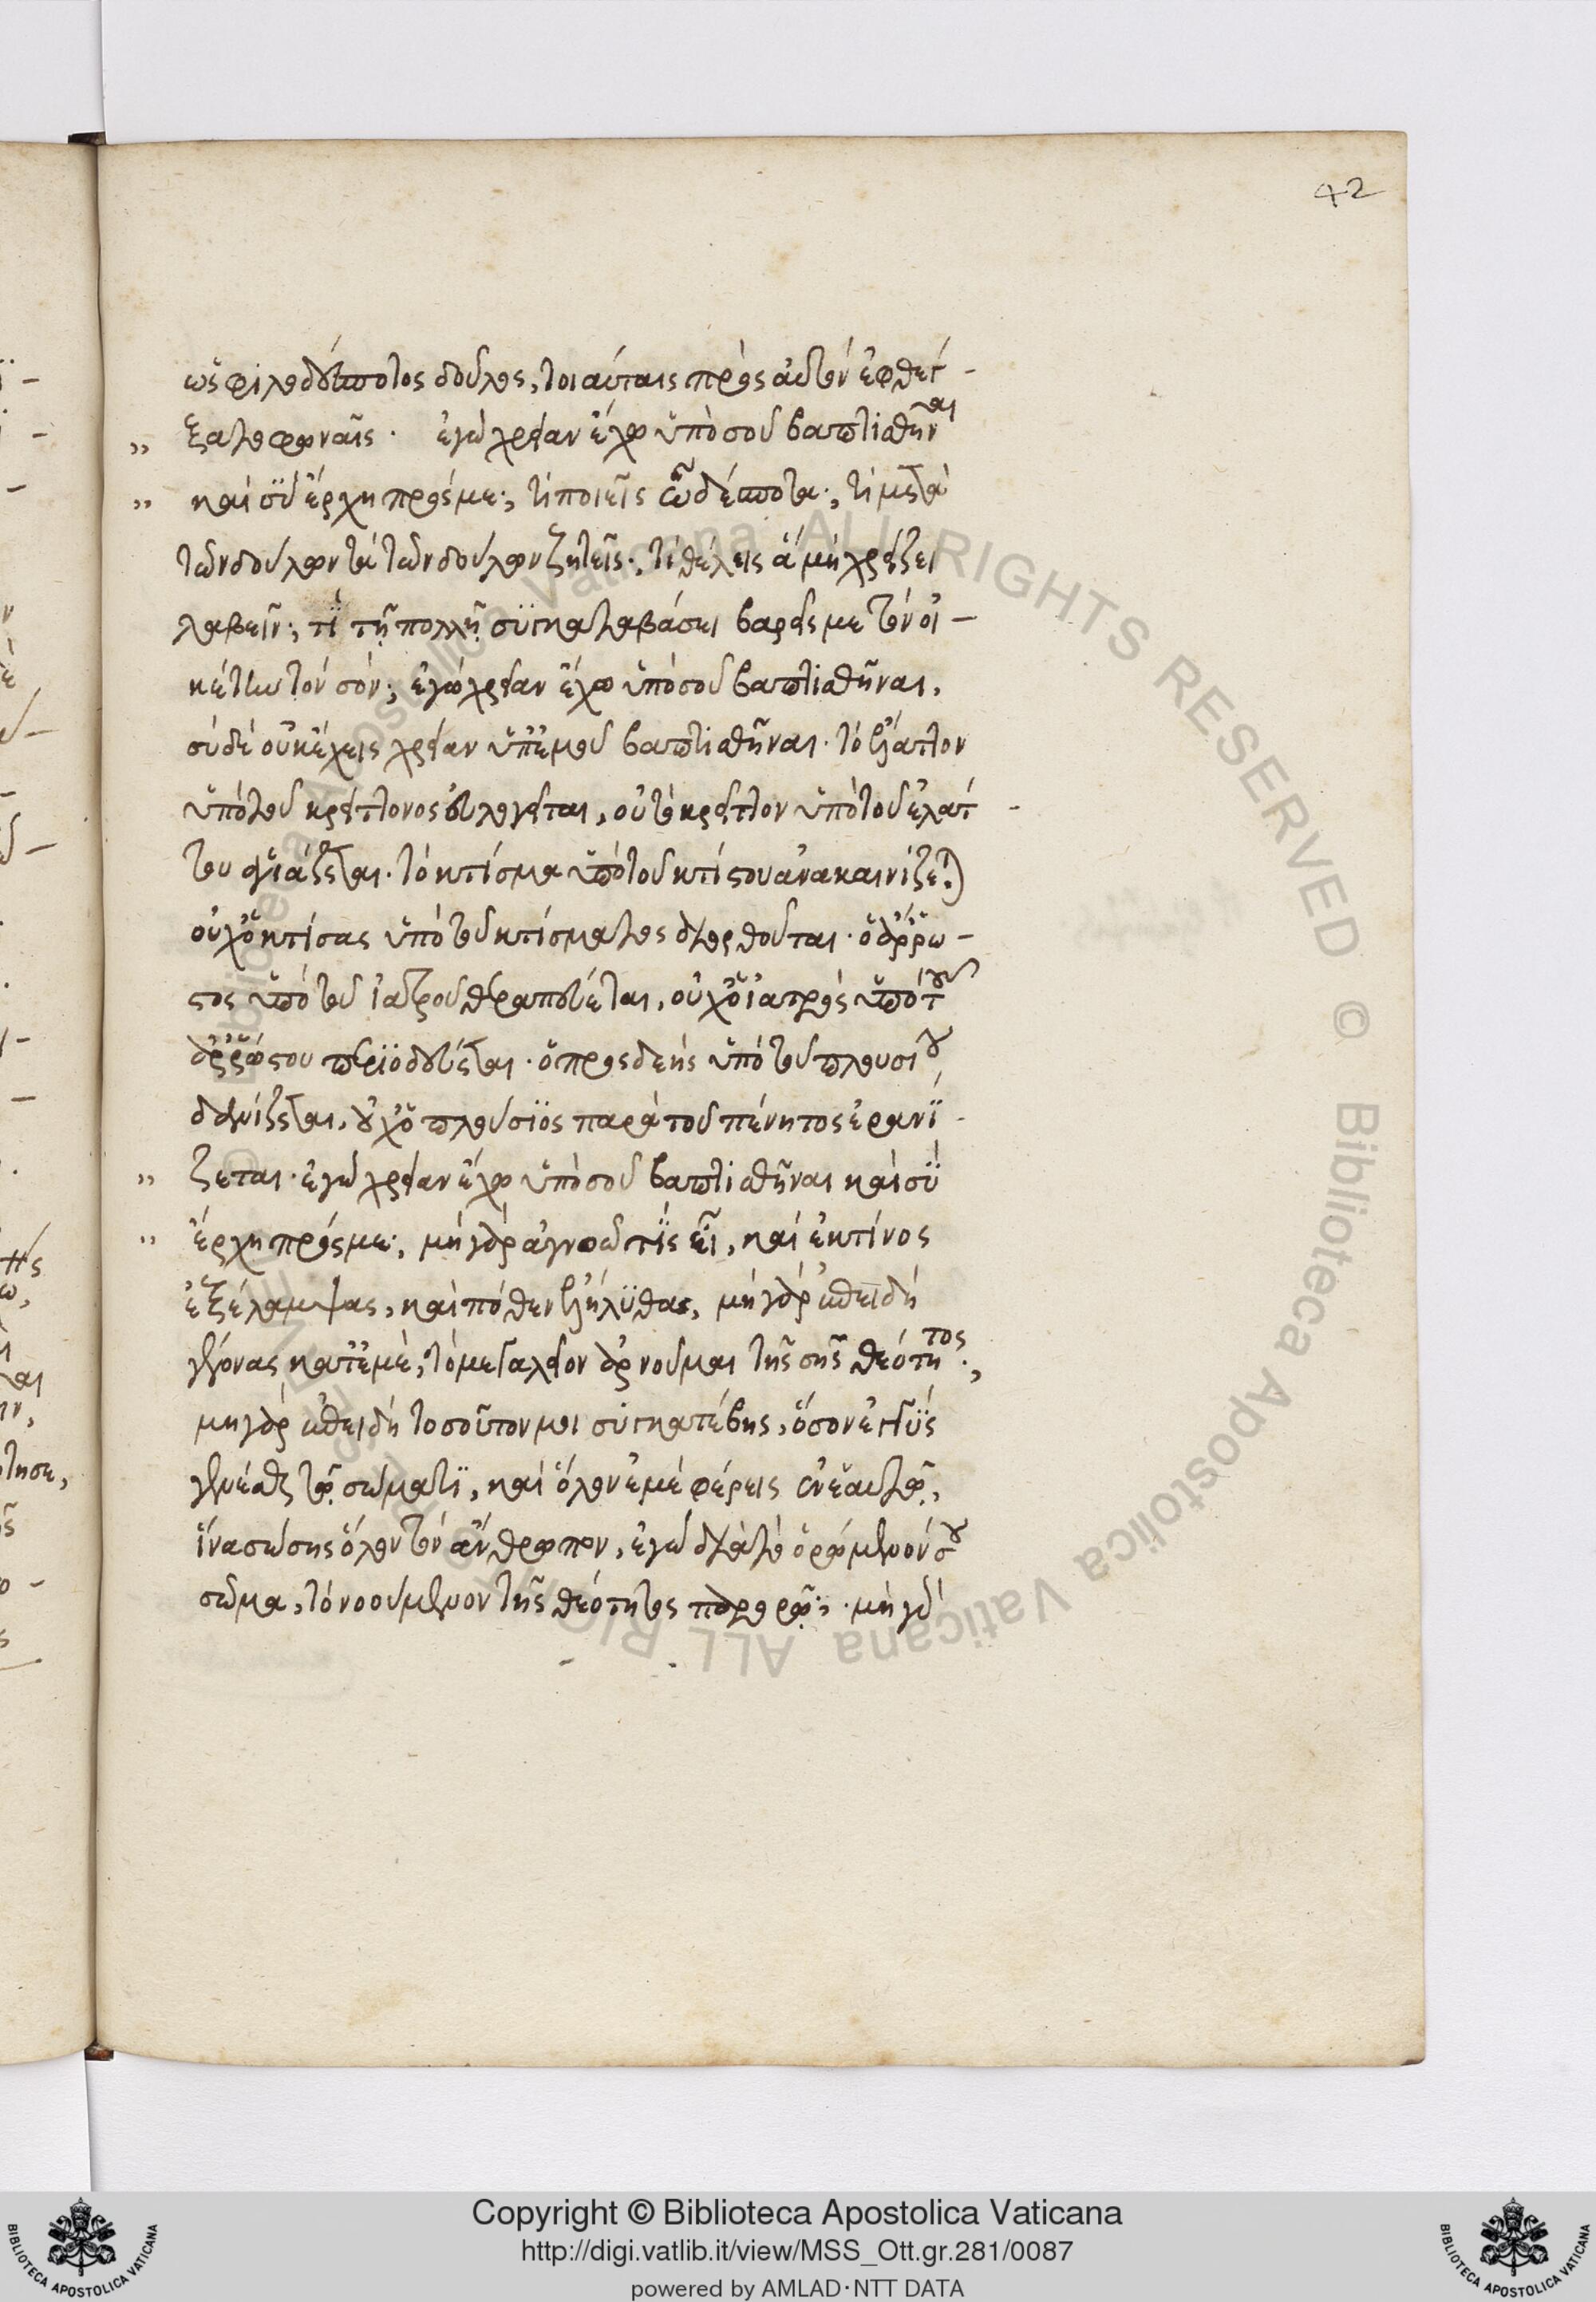 42
ὡς φιλοδέσποτος δοῦλος, τοιαύταις πρὸς αὐτὸν ἐφθέγ -
„ ξατο φωναῖς · ἐγὼ χρείαν ἔχω ὑπὸ σοῦ βαπτισθῆναι
„ καὶ σὺ ἔρχῃ πρός με; τί ποιεῖς ὦ δέσποτα; τί μετὰ
τῶν δούλων τὰ τῶν δούλων ζητεῖς; τί θέλεις ἃ μὴ χρῄζει
λαβεῖν; τί τῇ πολλῇ συγκαταβάσει βαρεῖς με τὸν οἰ -
κέτην τὸν σόν; ἐγὼ χρείαν ἔχω ὑπὸ σοῦ βαπτισθῆναι,
σὺ δὲ οὐκ ἔχεις χρείαν ὑπ' ἐμοῦ βαπτισθῆναι · τὸ ἔλαττον
ὑπὸ τοῦ κρείττονος εὐλογεῖται, οὐ τὸ κρεῖττον ὑπὸ τοῦ ἐλάτ -
του ἁγιάζεται · τὸ κτίσμα ὑπὸ τοῦ κτίστου ἀνακαινίζεται
οὐχ ὁ κτίσας ὑπὸ τοῦ κτίσματος διορθοῦται · ὁ ἄρρω -
στος ὑπὸ τοῦ ἰατροῦ θεραπεύεται, οὐχ ὁ ἰατρὸς ὑπὸ τοῦ
ἀρρώστου περιοδεύεται · ὁ προσδεὴς ὑπὸ τοῦ πλουσίου
δανείζεται, οὐχ ὁ πλούσιος παρὰ τοῦ πένητος ἐρανί -
„ ζεται · ἐγὼ χρείαν ἔχω ὑπὸ σοῦ βαπτισθῆναι καὶ σὺ
„ ἔρχῃ πρός με; μὴ γὰρ ἀγνοῶ τίς εἶ, καὶ ἐκ τίνος
ἐξέλαμψας, καὶ πόθεν ἐλήλυθας, μὴ γὰρ ἐπειδὴ
γέγονας κατ' ἐμὲ, τὸ μεγαλεῖον ἀρνοῦμαι τῆς σῆς θεότητος;
μὴ γὰρ ἐπειδὴ τοσοῦτόν μοι συγκατέβης, ὅσον ἐγγὺς
γενέσθαι τῷ σώματι, καὶ ὅλον ἐμὲ φέρεις ἐν ἑαυτῷ,
ἵνα σώσῃς ὅλον τὸν ἄνθρωπον, ἐγὼ διὰ τὸ ὁρώμενόν σου
σῶμα, τὸ νοούμενον τῆς θεότητος παρορῶ; · μὴ γὰρ
Copyright © Biblioteca Apostolica Vaticana
http://digi.vatlib.it/view/MSS_Ott.gr.281/0087
powered by AMLAD·NTT DATA